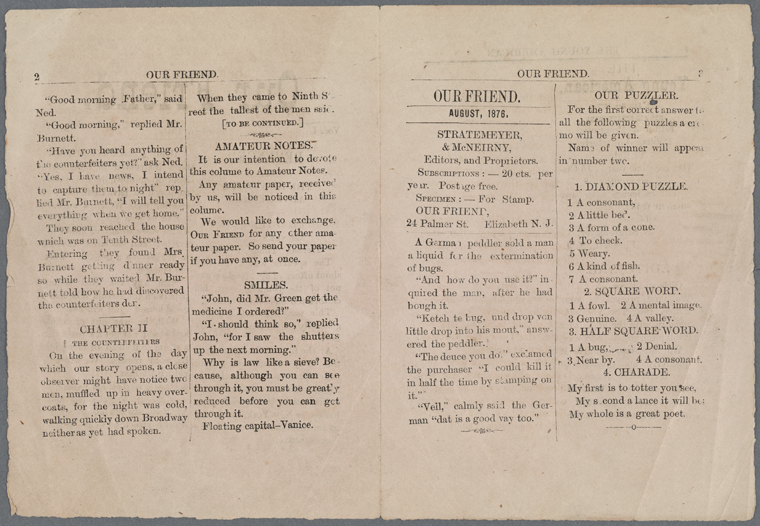 2
OUR FRIEND.
"Good morning Father," said
Ned.
"Good morning," replied Mr.
Burnett.
"Have you heard anything of
the counterfeiters yet?" ask Ned,
"Yes, I have news, I intend
to capture them to night" rep
lied Mr. Burnett, "I will tell you
everything when we get home."
They soon reached the house
which was on Tenth Street.
Entering they found Mrs
Burnett getting dinner ready
so while they waited Mr. Bur-
nett told how he had discovered
the counterfeiters den.
CHAPTER II
THE COUNTERFEITERS
On the evening of the day
which our story opens, a close
observer might have notice two
men, muffled up in heavy over-
coats, for the night was cold,
walking quickly down Broadway
neither as yet had spoken.
When they came to Ninth S
reet the tallest of the men said.
[TO BE CONTINUED.]
AMATEUR NOTES.
It is our intention to devote
this colume to Amateur Notes.
Any amateur paper, received
by us, will be noticed in this
colume.
We would like to exchange.
OUR FRIEND for any other ama-
teur paper. So send your paper
if you have any, at once.
SMILES.
"John, did Mr. Green get the
medicine I ordered?"
"I should think so," replied
John, "for I saw the shutters
up the next morning."
Why is law like a sieve? Be-
cause, although you can see
through it, you must be greatly
reduced before you can get
through it.
Floating capital–Vanice.
OUR FRIEND.
OUR FRIEND.
AUGUST, 1876.
STRATEMEYER,
& McNEIRNY,
Editors, and Proprietors.
SUBSCRIPTIONS : — 20 cts. per
year. Postage free.
SPECIMEN : — For Stamp.
OUR FRIEND,
24 Palmer St. Elizabeth N. J.
A German peddler sold a man
a liquid for the extermination
of bugs.
"And how do you use it?" in-
quired the man, after he had
bough it.
"Ketch te bug, und drop von
little drop into his mout," answ-
ered the peddler.
"The deuce you do." exclamed
the purchaser "I could kill it
in half the time by stamping on
it."
"Vell," calmly said the Ger-
man "dat is a good vay too."
OUR PUZZLER.
For the first correct answer to
all the following puzzles a
mo will be given.
Name of winner will appear
in number two.
1. DIAMOND PUZZLE.
1 A consonant,
2 A little bed.
3 A form of a cone.
4 To check.
5 Weary.
6 A kind of fish.
7 A consonant.
2. SQUARE WORD.
1 A fowl. 2 A mental image.
3 Genuine. 4 A valley.
3. HALF SQUARE WORD.
1 A bug, 2 Denial.
3 Near by. 4 A consonant.
4. CHARADE.
My first is to totter you see,
My second a lance it will be:
My whole is a great poet.